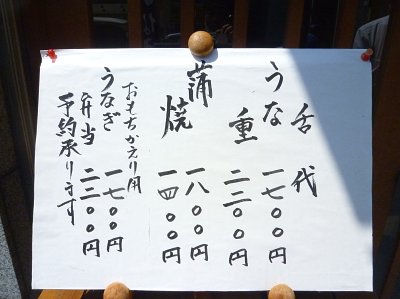 舌代
うな 一七〇〇円
重 二二〇〇円
蒲 一八〇〇円
焼 一四〇〇円
おもちかえり用
うなぎ 一七〇〇円
弁当 二二〇〇円
予約承ります